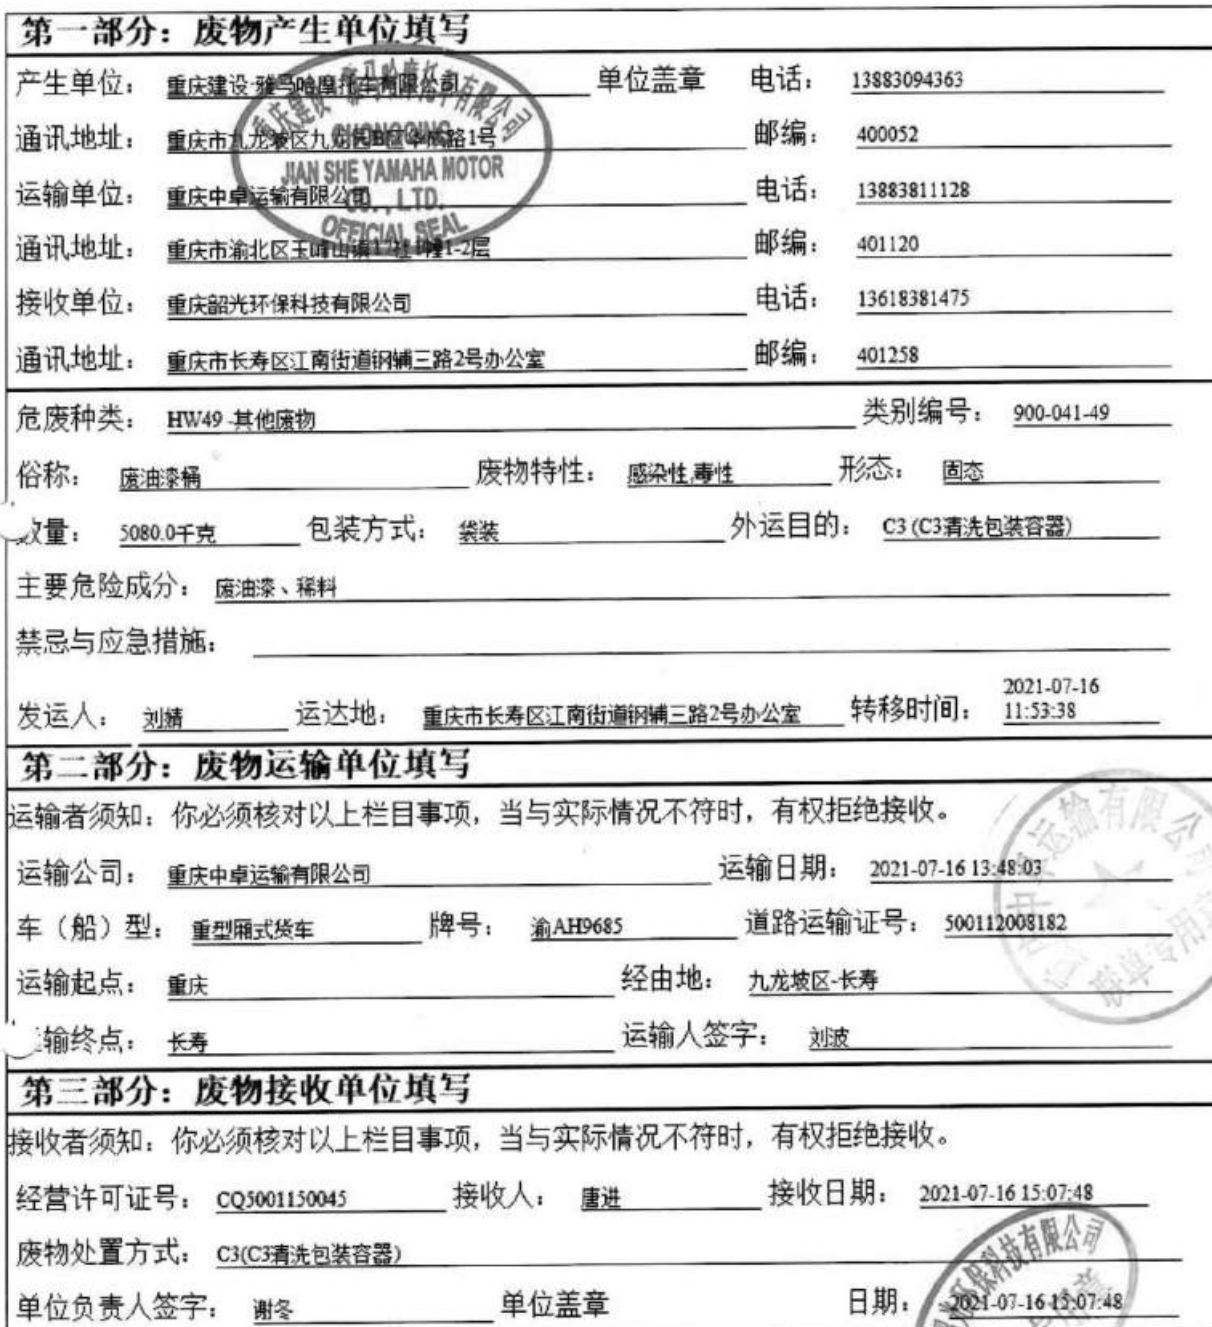 第一部分：废物产生单位填写
产生单位： 重庆建设·雅马哈摩托车有限公司 单位盖章 电话： 13883094363
通讯地址： 重庆市九龙坡区九龙园B区华成路1号 邮编： 400052
运输单位： 重庆中卓运输有限公司 电话： 13883811128
通讯地址： 重庆市渝北区玉峰山镇 1-2层 邮编： 401120
接收单位： 重庆韶光环保科技有限公司 电话： 13618381475
通讯地址： 重庆市长寿区江南街道钢辅三路2号办公室 邮编： 401258
CHONGQING
JIAN SHE YAMAHA MOTOR
CO., LTD.
OFFICIAL SEAL
危废种类： HW49 -其他废物 类别编号： 900-041-49
俗称： 废油漆桶 废物特性： 感染性,毒性 形态： 固态
数量： 5080.0千克 包装方式： 袋装 外运目的： C3 (C3清洗包装容器)
主要危险成分： 废油漆、稀料
禁忌与应急措施：
发运人： 刘婧 运达地： 重庆市长寿区江南街道钢辅三路2号办公室 转移时间： 2021-07-16
11:53:38
第二部分：废物运输单位填写
运输者须知：你必须核对以上栏目事项，当与实际情况不符时，有权拒绝接收。
运输公司： 重庆中卓运输有限公司 运输日期： 2021-07-16 13:48:03
车（船）型： 重型厢式货车 牌号： 渝AH9685 道路运输证号： 500112008182
运输起点： 重庆 经由地： 九龙坡区-长寿
运输终点： 长寿 运输人签字： 刘波
第三部分：废物接收单位填写
接收者须知：你必须核对以上栏目事项，当与实际情况不符时，有权拒绝接收。
经营许可证号： CQ5001150045 接收人： 唐进 接收日期： 2021-07-16 15:07:48
废物处置方式： C3(C3清洗包装容器)
单位负责人签字： 谢冬 单位盖章 日期： 2021-07-16 15:07:48